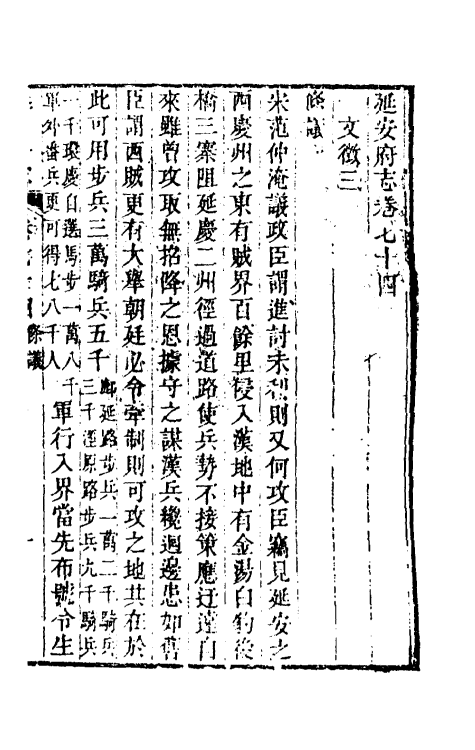 延安府志卷七十四
文徵三
條議
宋范仲淹議攻臣謂進討未利則又何攻臣竊見延安之
西慶州之東有賊界百餘里侵入漢地中有金湯白豹後
橋三寨阻延慶二州徑過道路使兵勢不接策應迂遠自
來雖曾攻取無招降之恩據守之謀漢兵纔迴邊患如舊
臣謂西賊更有大舉朝廷必令牽制則可攻之地其在於
此可用步兵三萬騎兵五千鄜延路步兵一萬二千騎兵三千涇原路步兵九千騎兵
一千環慶自選馬步一萬八千軍外番兵更可得七八千人軍行入界當先布號令生
條議